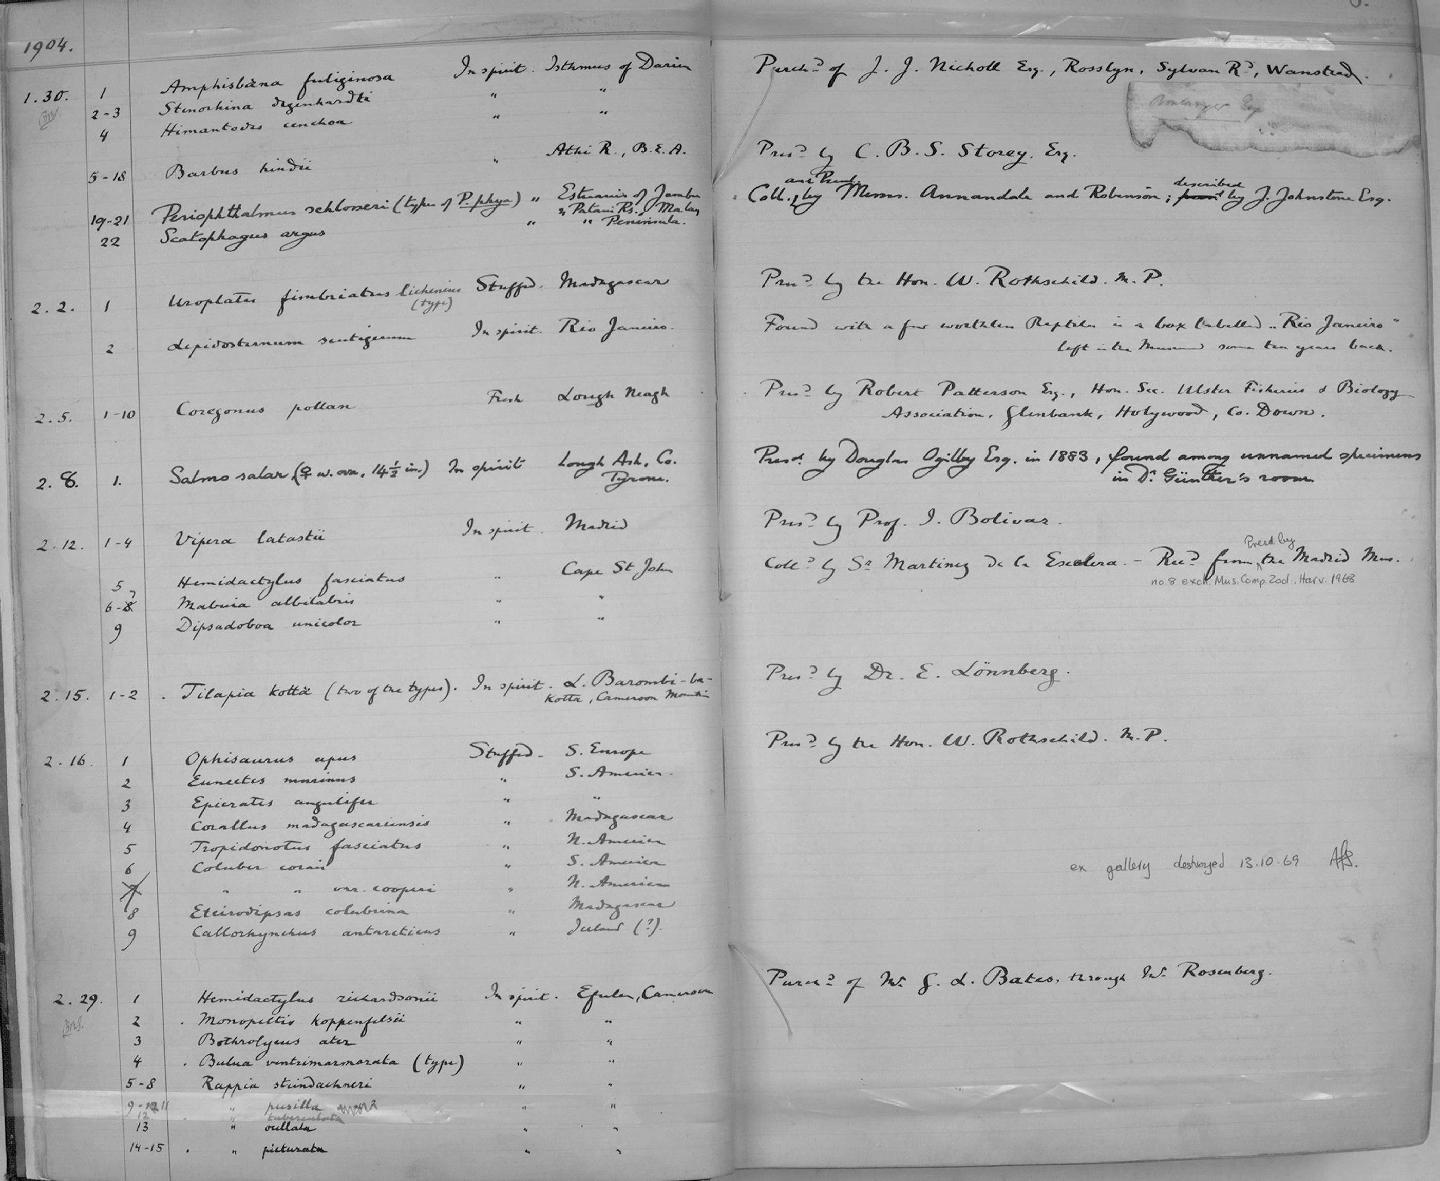 1904.
1.30. 1 Amphisbæna fuliginosa In spirit. Isthmus of Darien Purch^d of J. J. Nicholl Esq., Rosslyn, Sylvan R^d, Wanstead.
2-3 Stenorhina degenhardti " "
4 Himantodes cenchoa " "
5-18 Barbus hindii " Athi R., B.E.A. Pres^d by C. B. S. Storey. Esq.
19-21 Periophthalmus schlosseri (types of P. phya) " Estuaries of Jambu & Patani Rs., Malay Coll. and Pres^d by Messrs. Annandale and Robinson; described by J. Johnstone Esq.
22 Scatophagus argus " " Peninsula.
2.2. 1 Uroplates fimbriatus lichenius (type) Stuffed. Madagascar Pres^d by the Hon. W. Rothschild. M.P.
2 Lepidosternum scutigerum In spirit. Rio Janeiro. Found with a few worthless Reptiles in a box labelled "Rio Janeiro"
left in the Museum some ten years back.
2.5. 1-10 Coregonus pollan Fresh Lough Neagh Pres^d by Robert Patterson Esq., Hon. Sec. Ulster Fisheries & Biology
Association, Glenbank, Holywood, Co. Down.
2.8. 1. Salmo salar (♀ w. ova, 14½ in.) In spirit Lough Ash, Co. Tyrone. Presd. by Douglas Ogilby Esq. in 1883, found among unnamed specimens
in Dr. Günther's room
2.12. 1-4 Vipera latastii In spirit. Madrid Pres^d by Prof. I. Bolivar.
5 Hemidactylus fasciatus " Cape St John Coll^d by S^r Martinez de la Escalera. - Rec^d from Presd by the Madrid Mus.
no. 8 exch. Mus. Comp. Zool. Harv. 1968
6-8 7 Mabuia albilabris " "
9 Dipsadoboa unicolor " "
2.15. 1-2 . Tilapia kottæ (two of the types). In spirit. L. Barombi-ba-
kotta, Cameroon Mountain Pres^d by Dr. E. Lönnberg.
2.16. 1 Ophisaurus apus Stuffed. S. Europe Pres^d by the Hon. W. Rothschild. M.P.
2 Eunectes murinus " S. America.
3 Epicrates angulifer " "
4 Corallus madagascariensis " Madagascar
5 Tropidonotus fasciatus " N. America
6 Coluber corais " S. America ex gallery destroyed 13.10.69
7 " " var. couperi " N. America
8 Eteirodipsas colubrina " Madagascar
9 Callorhynchus antarcticus " Iceland (?).
2.29. 1 Hemidactylus richardsonii In spirit. Efulen, Cameroon Purch^d of Mr G. L. Bates. through Mr Rosenberg.
2 . Monopeltis koppenfelsii " "
3 Bothrolycus ater " "
4 . Bulua ventrimarmorata (type) " "
5-8 Rappia steindachneri " "
9-11 " pusilla " "
12 " tuberculata
13 " ocellata " "
14-15 . " picturata " "